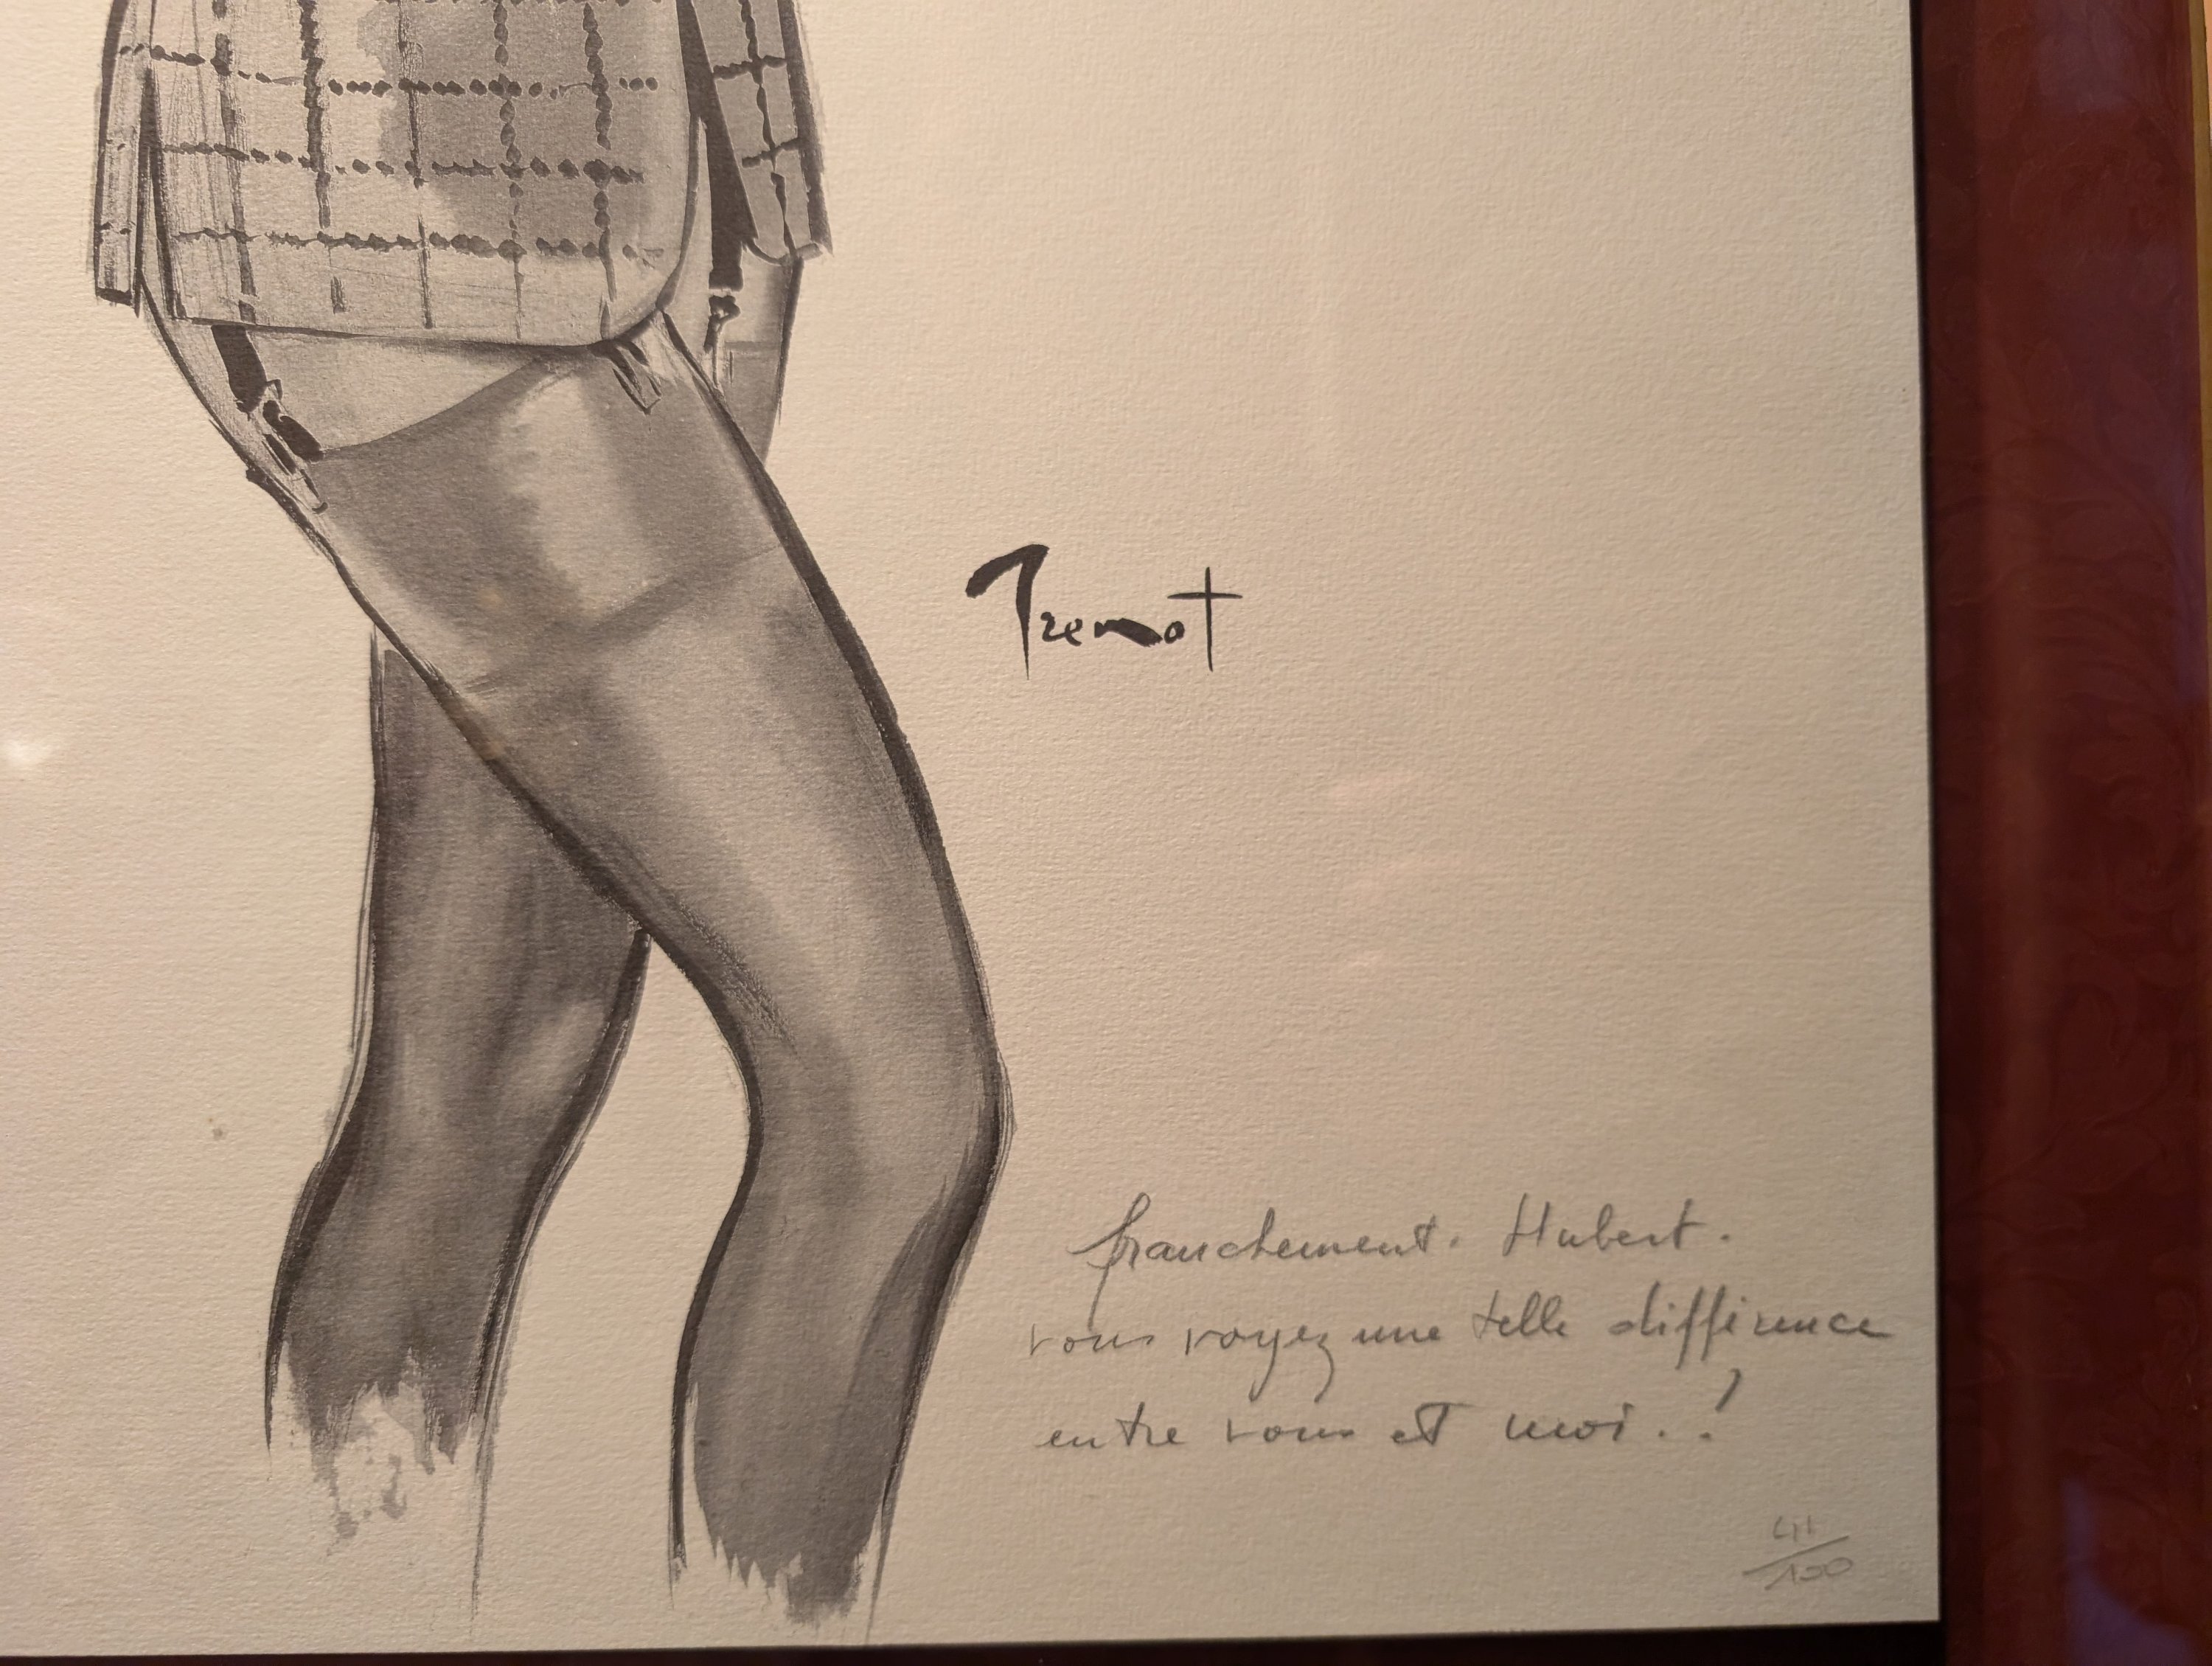 Tremot
franchement. Hubert.
vous voyez une telle différence
entre vous et moi..?
41/100